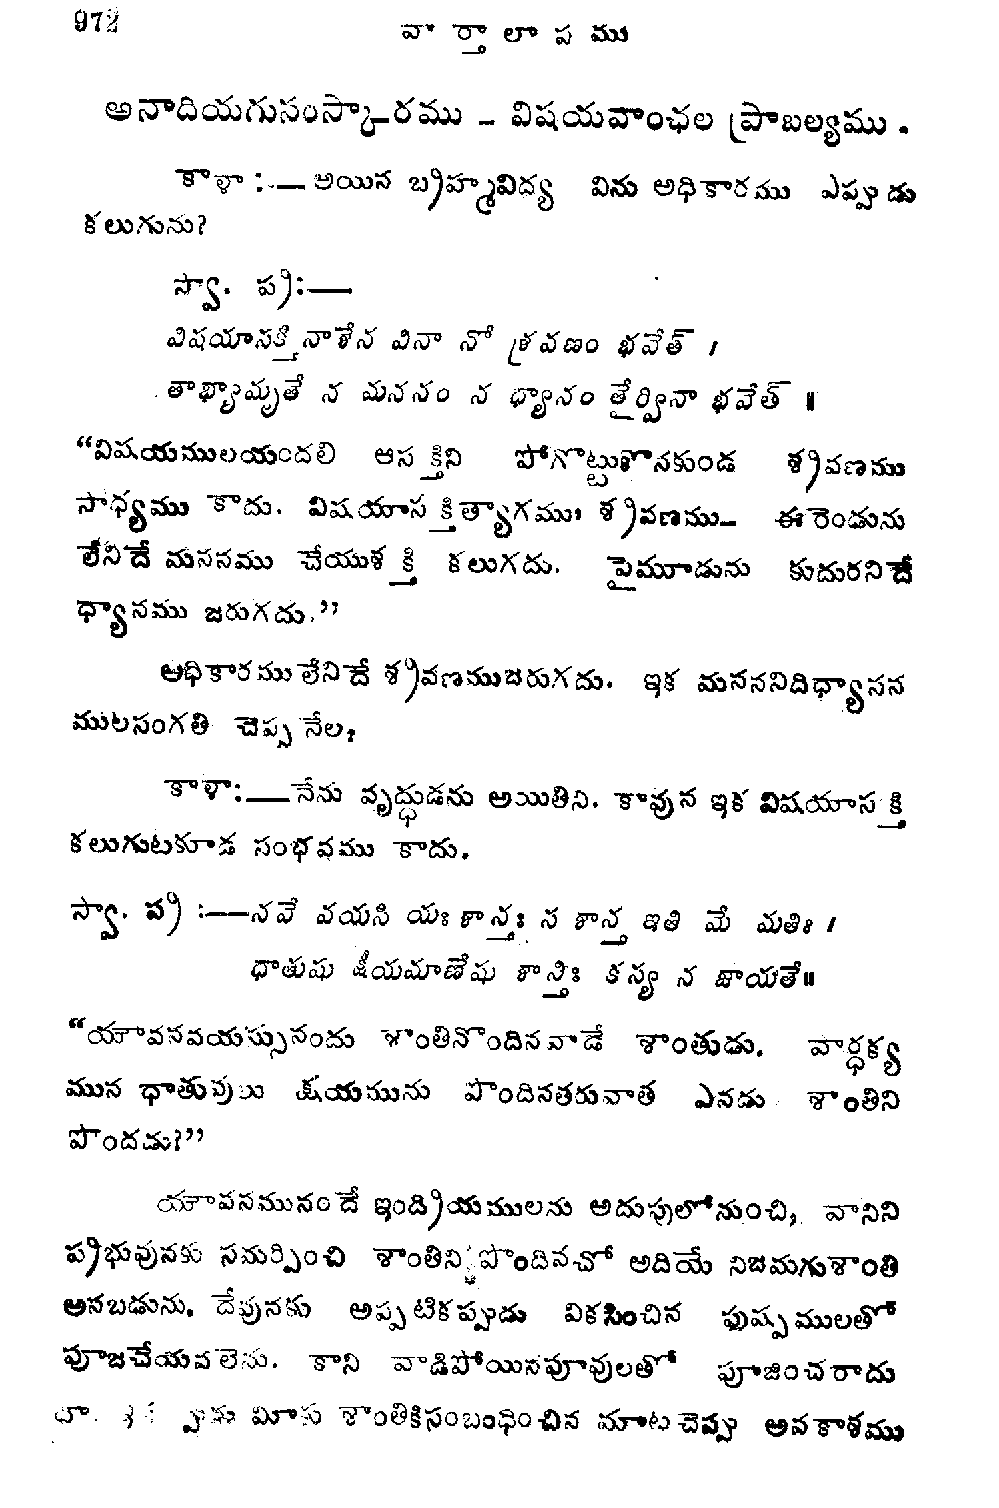 972
వార్తాలాపము
అనాదియగుసంస్కారము - విషయవాంఛల ప్రాబల్యము.
కాళా :— అయిన బ్రహ్మవిద్య విను అధికారము ఎప్పుడు
కలుగును?
స్వా. ప్ర:—
విషయాసక్తినాశేన వినా నో శ్రవణం భవేత్ ।
తాభ్యామృతే న మననం న ధ్యానం తైర్వినా భవేత్ ॥
“విషయములయందలి ఆసక్తిని పోగొట్టుకొనకుండ శ్రవణము
సాధ్యము కాదు. విషయాసక్తిత్యాగము; శ్రవణము— ఈ రెండును
లేనిదే మననము చేయుశక్తి కలుగదు. పైమూడును కుదురనిదే
ధ్యానము జరుగదు.”
అధికారములేనిదే శ్రవణముజరుగదు. ఇక మనననిదిధ్యాసన
ములసంగతి చెప్పనేల?
కాళా:—నేను వృద్ధుడను అయితిని. కావున ఇక విషయాసక్తి
కలుగుటకూడ సంభవము కాదు.
స్వా. ప్ర :—నవే వయసి యః శాన్తః స శాన్త ఇతి మే మతిః ।
ధాతుషు క్షీయమాణేషు శాన్తిః కస్య న జాయతే॥
“యౌవనవయస్సునందు శాంతినొందినవాడే శాంతుడు. వార్ధక్య
మున ధాతువులు క్షయమును పొందినతరువాత ఎవడు శాంతిని
పొందడు?”
యౌవనమునందే ఇంద్రియములను అదుపులోనుంచి, వానిని
ప్రభువునకు సమర్పించి శాంతిని పొందినచో అదియే నిజమగుశాంతి
అనబడును. దేవునకు అప్పటికప్పుడు వికసించిన పుష్పములతో
పూజచేయవలెను. కాని వాడిపోయినపూవులతో పూజించరాదు
మీకు శాంతికిసంబంధించిన మాటచెప్పు అవకాశము